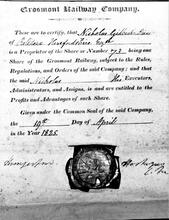 Grosmont Railway Company.
These are to certify, that Nicholas
of Herefordshire
is a Proprietor of the Share of Number being one
Share of the Grosmont Railway, subject to the Rules,
Regulations, and Orders of the said Company; and that
the said Nicholas His Executors,
Administrators, and Assigns, is and are entitled to the
Profits and Advantages of such Share.
Given under the Common Seal of the said Company,
the 19th Day of April
in the Year 1825.